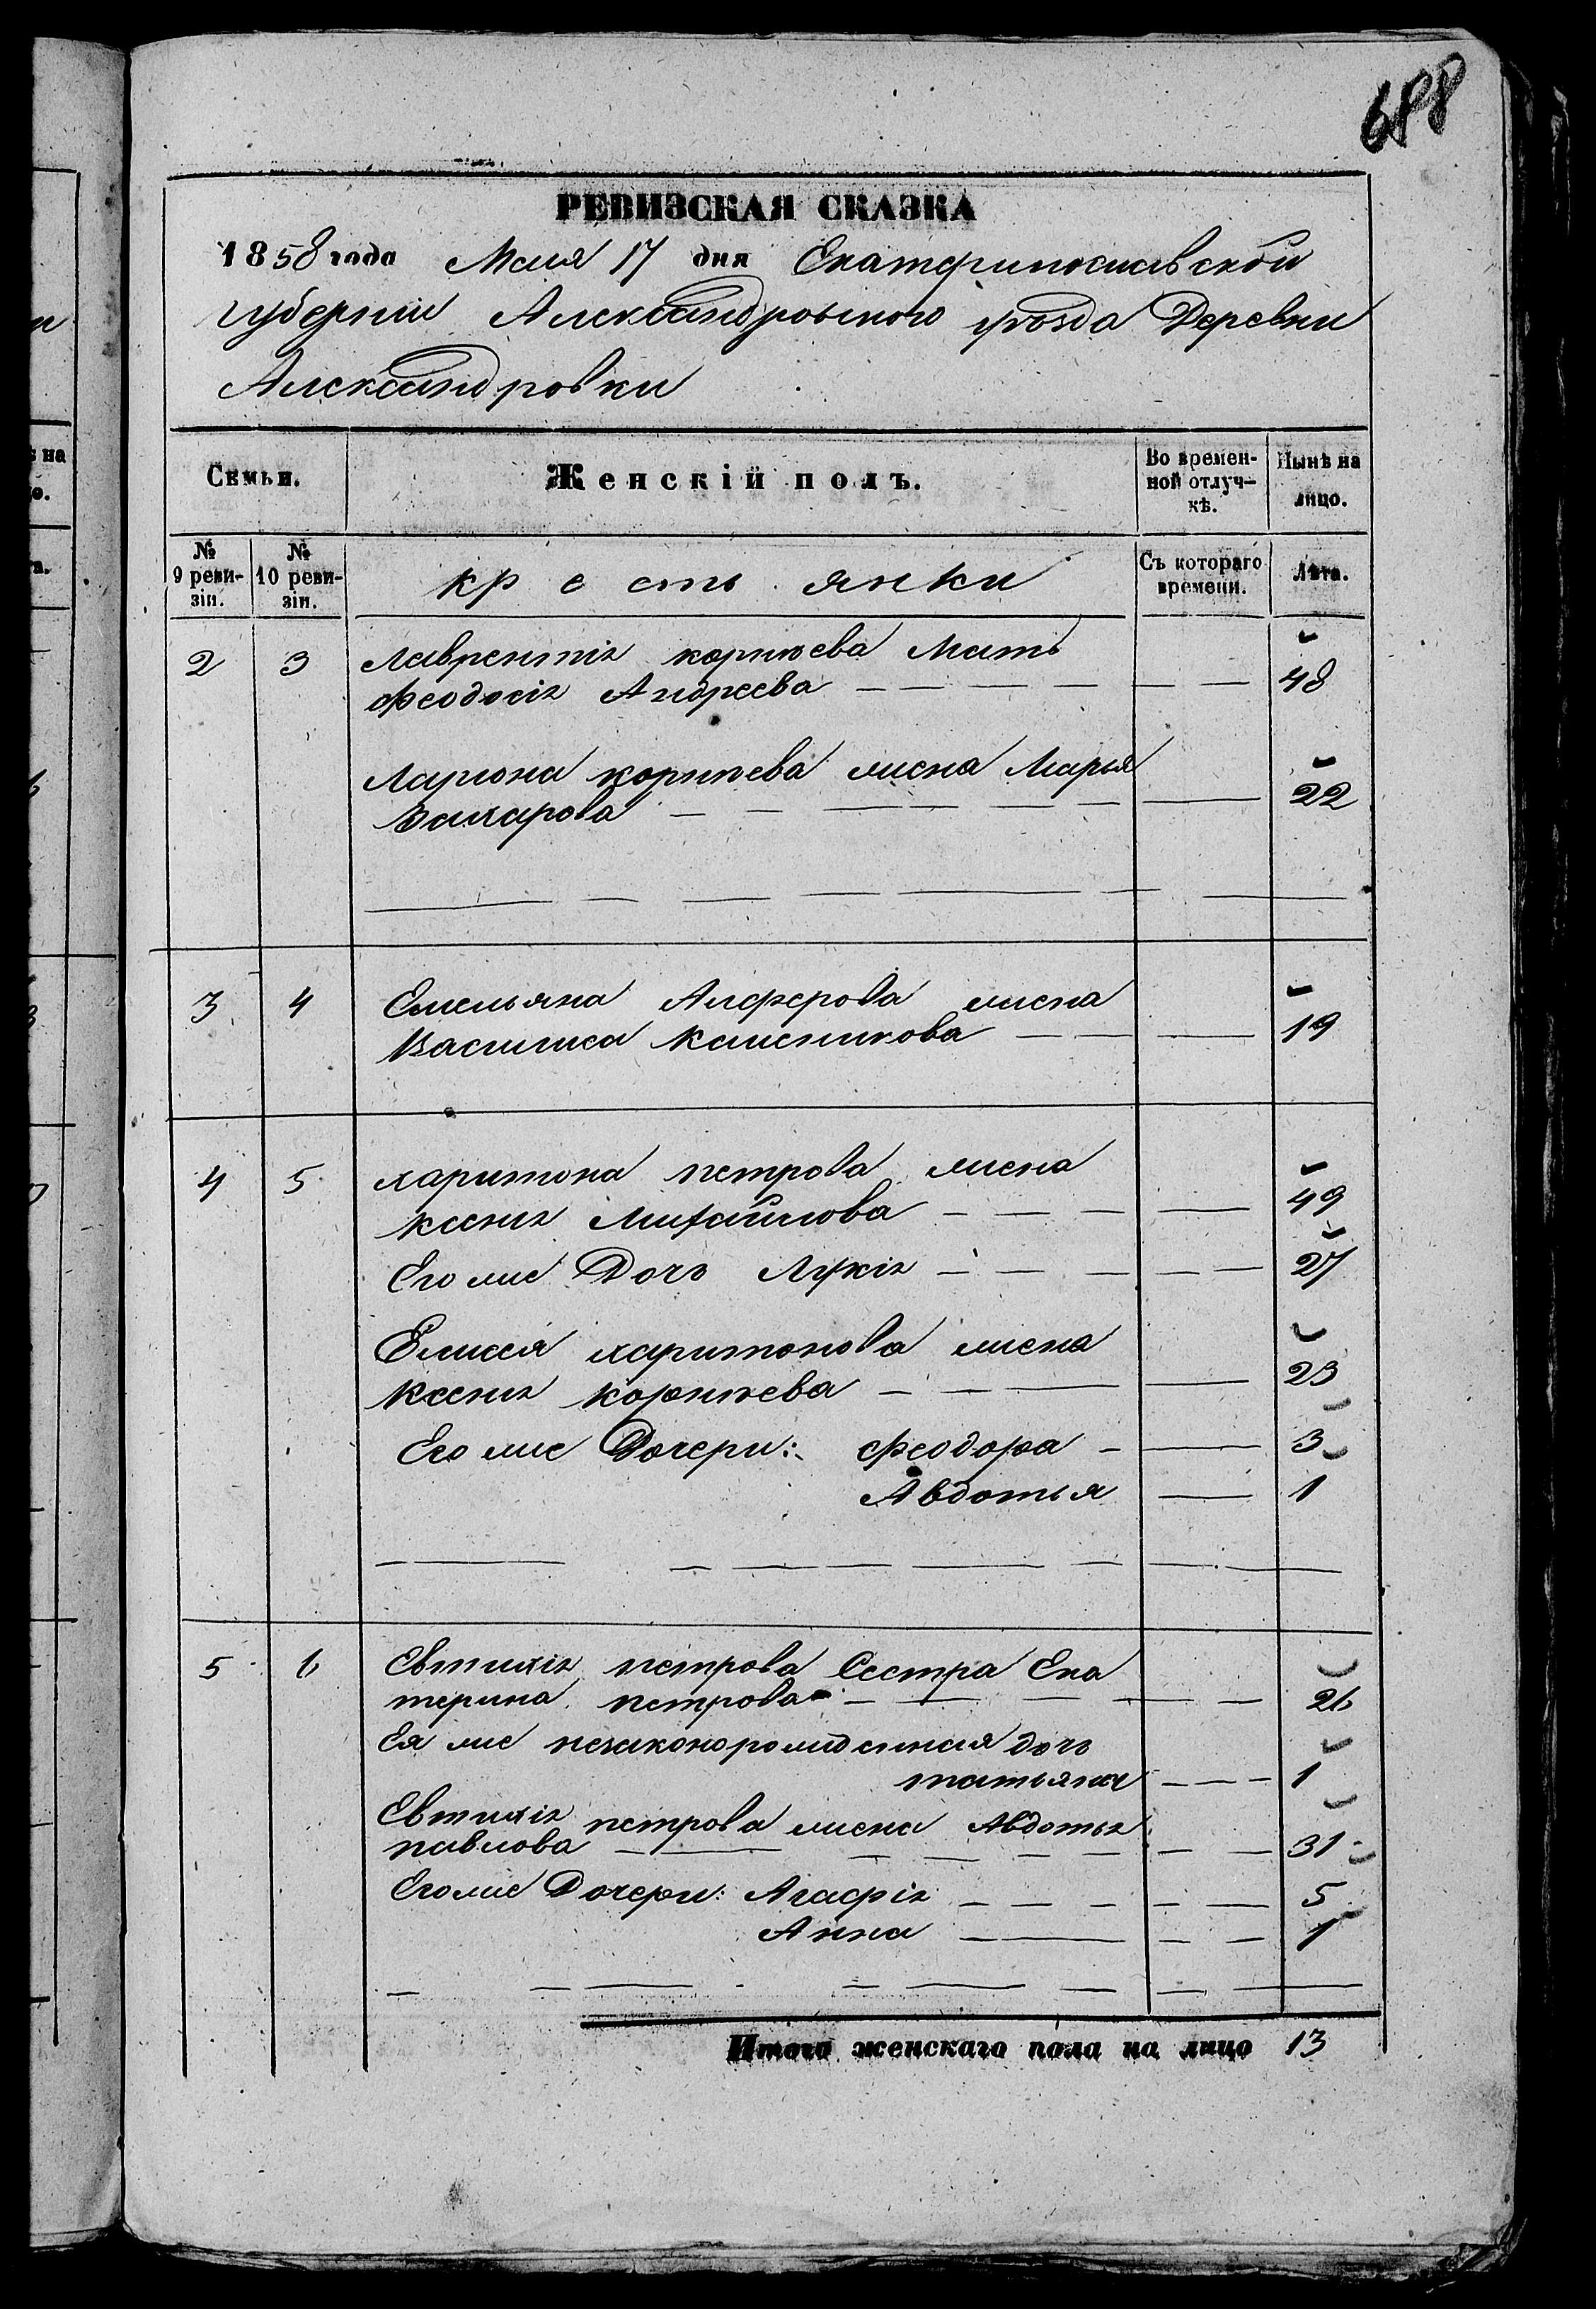 688
РЕВИЗСКАЯ СКАЗКА
1858 года Маия 17 дня Екатеринославской
губернии Александровского уѣзда Деревни
Александровки
Семьи. Женскій полъ. Во времен- Нынѣ на
ной отлуч- лицо.
кѣ.
№ № Съ котораго Лѣта.
9 реви- 10 реви- крестьянки времени.
зіи. зіи.
2 3 Лаврентія корнѣева Мать
Феодосія Андреева — — — — — — 48
Лариона корнѣева жена Марья
Захарова — — — — — — 22
3 4 Емельяна Алферова жена
Василиса Каленикова — — — 19
4 5 харитона петрова жена
Ксенія Михайлова — — — — 49
Его же Дочь Лукія — — — — — — 27
Елисея харитонова жена
Ксенія корнѣева — — — — 23
Его же Дочери: Феодора — — 3
Авдотья — 1
5 6 Евтихія петрова Сестра Ека
терина петрова — — — — — — 26
Ея же незаконорожденная дочь
татьяна — — — 1
Евтихія петрова жена Авдотья
павлова — — — — — — — — 31
Его же Дочери: Агафія — — — — — 5
Анна — — — — 1
Итого женскаго пола на лицо 13